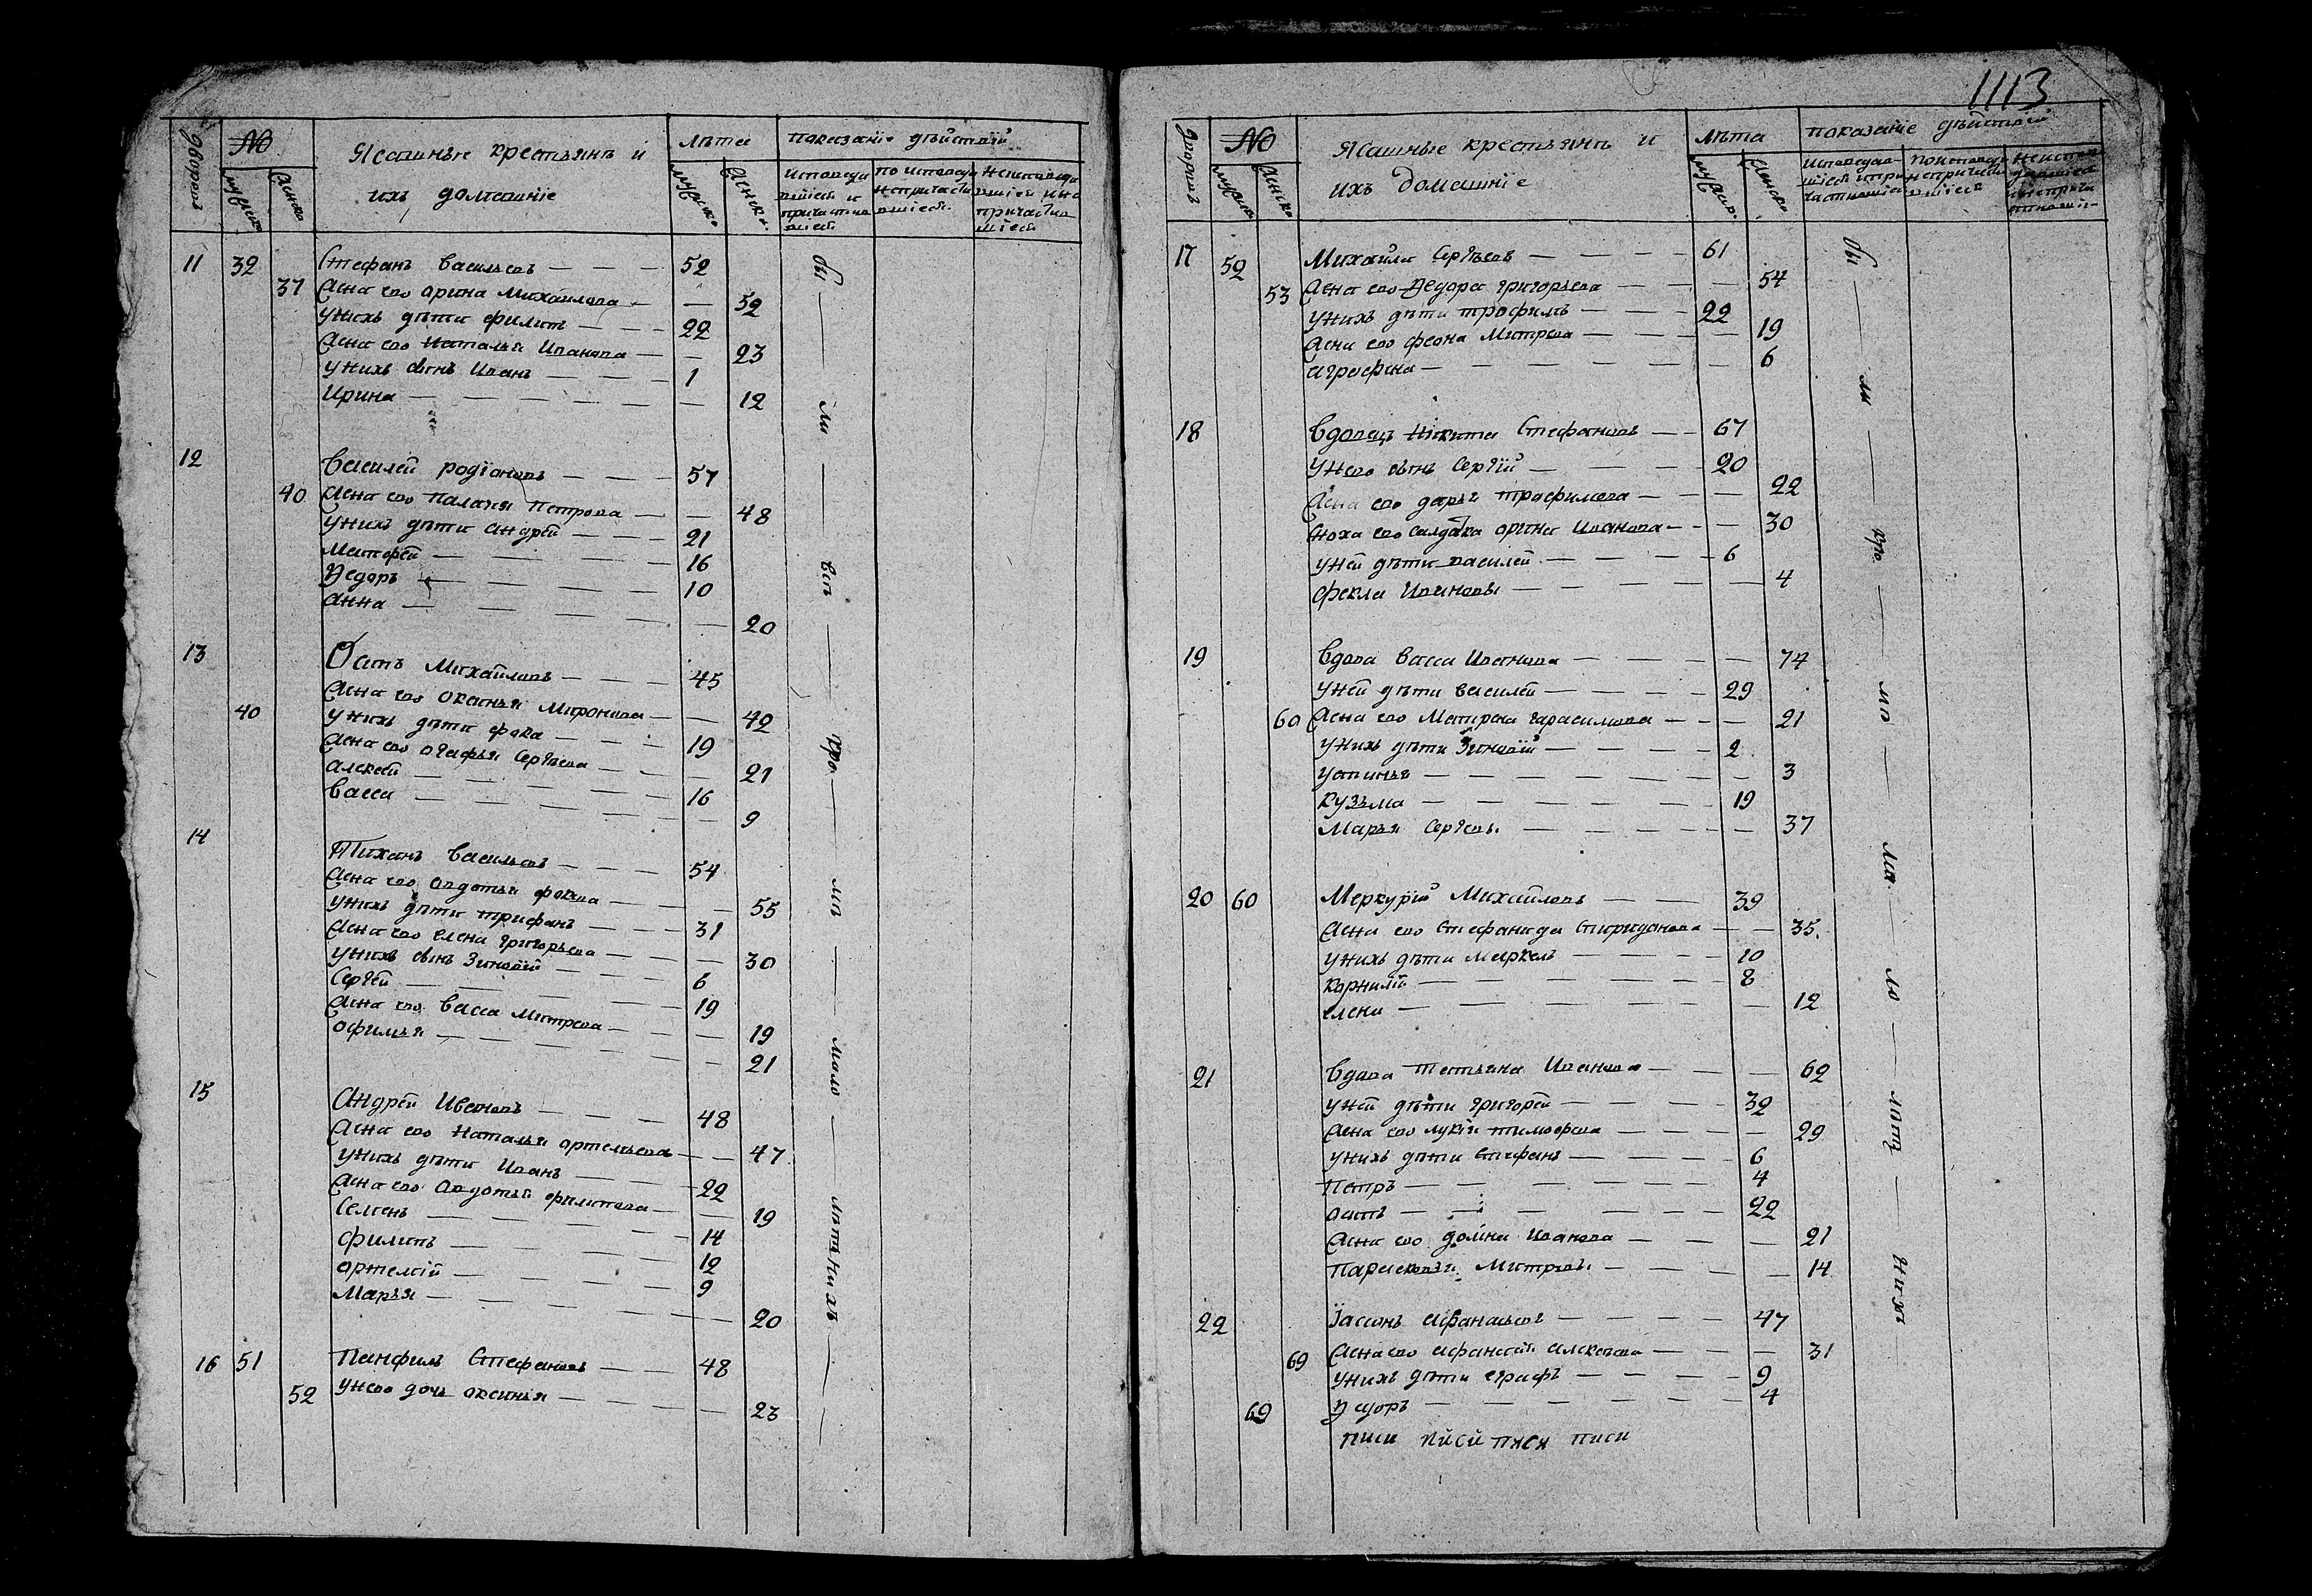 1113
дворовъ
№
мужска
женска
Ясашные крестьянъ и
ихъ домашніе
лѣта
мужска.
женска.
показаніе дѣйствій
исповеда
вшіеся и
причастив
шіеся
по исповеди
непричасти
вшіеся.
11 32 Стефанъ васильевъ — — — 52
37 Жена ево орина Михаилова — — 52
унихъ дѣти филипъ — — — 22
Жена ево Наталья Иванова — — 23
унихъ сынъ Иванъ — — — 1
Ирина — — — — — — 12
12 василей родїоновъ — — — 57
40 Жена ево палагея Петрова — — 48
унихъ дѣти андрей — — — 21
Матфей — — — — 16
Ѳедоръ — — — — 10
анна — — — — — 20
13 Осипъ Михаиловъ — — — 45
Жена ево оксинья Миронова — — 42
40 унихъ дѣти фока — — — 19
Жена ево огафья Сергѣева — — — 21
алексей — — — — — 16
васса — — — — — 9
14 Тиханъ васильевъ — — — 54
Жена ево авдотья фокина — — — 55
унихъ дѣти трифанъ — — — 31
Жена ево елена григорьева — — — 30
унихъ сынъ Зиновїй — — — 6
Сергей — — — — — 19
Жена ево васса Митрева — — — 19
офимья — — — — — — 21
15 Андрей Ивановъ — — — 48
Жена ево Наталья ортемьева — — 47
унихъ дѣти Иванъ — — — 22
Жена ево авдотья филипова — — 19
Семенъ — — — — — 14
филипъ — — — — 12
ортемій — — — — 9
Марья — — — — — — 20
16 51 Панфилъ Стефановъ — — 48
52 унево дочь оксинья — — — — 23
бы — — ли — — всѣ — — кро — — мѣ — — мало — — лѣтнихъ — —
дворовъ
№
мужска
женска
Ясашные крестьянъ и
ихъ домашніе
лѣта
мужска.
женска.
показаніе дѣйствій
17 52 Михаила Сергѣевъ — — — — 61
53 Жена ево Ѳедора григорьева — — — 54
унихъ дѣти трофимъ — — — 22
Жена ево феона Митрева — — — 19
аграфена — — — — — — 6
18 вдовецъ Никита Стефановъ — — 67
унево сынъ Сергїй — — — — 20
Жена ево дарья трофимова — — — 22
сноха ево салдатка орина Иванова — — 30
уней дѣти василей — — — — — 6
фекла Иванова — — — — — — 4
19 вдова васса Иванова — — — — 74
уней дѣти василей — — — — 29
60 Жена ево Матрена гарасимова — — — 21
унихъ дѣти Зиновїй — — — — 2
устинья — — — — — — — 3
кузьма — — — — — — 19
Марья Сергѣева — — — — — — 37
20 60 Меркурїй Михайловъ — — — 39
Жена ево Стефанида Спиридонова — — 35.
унихъ дѣти Маркелъ — — — — 10
корнилїй — — — — — — 8
елена — — — — — — — 12
21 вдова татьяна Иванова — — — 62
уней дѣти григорей — — — — 32
Жена ево лукїя тимофеева — — — — 29
унихъ дѣти Стефанъ — — — — 6
Петръ — — — — — — 4
осипъ — — — — — — 22
Жена ево домна Иванова — — — — 21
Парасковья Митрева — — — — 14
22 Їасонъ афанасьевъ — — — — 47
69 Жена ево афанасїя алексеева — — — — 31
унихъ дѣти еграфъ — — — — 9
69 Ѳедоръ — — — — — — 4
бы — — ли — — кро — — мѣ — — ма — — ло — — лѣт — — нихъ